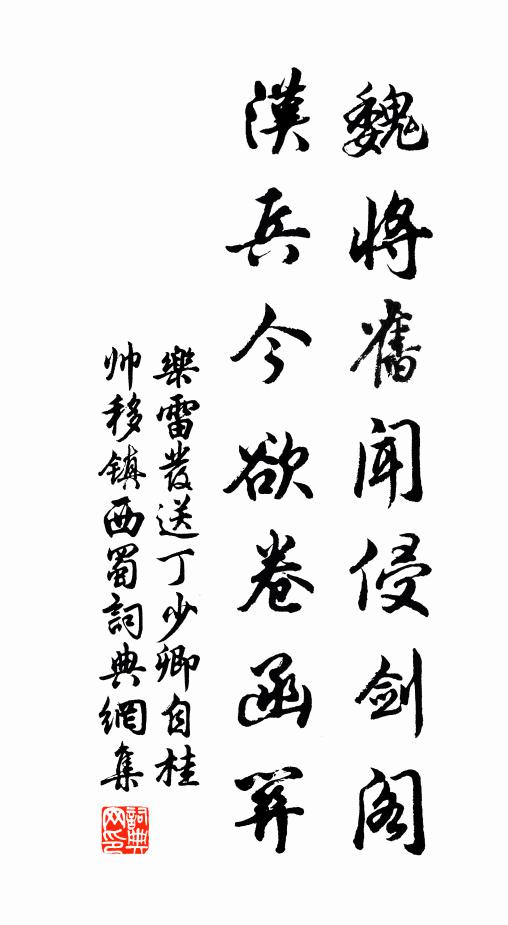 魏將舊聞侵劍閣
漢兵今欲卷函關
樂雷發送丁少卿自桂
帥移鎮西蜀詞典網集
詞典网印